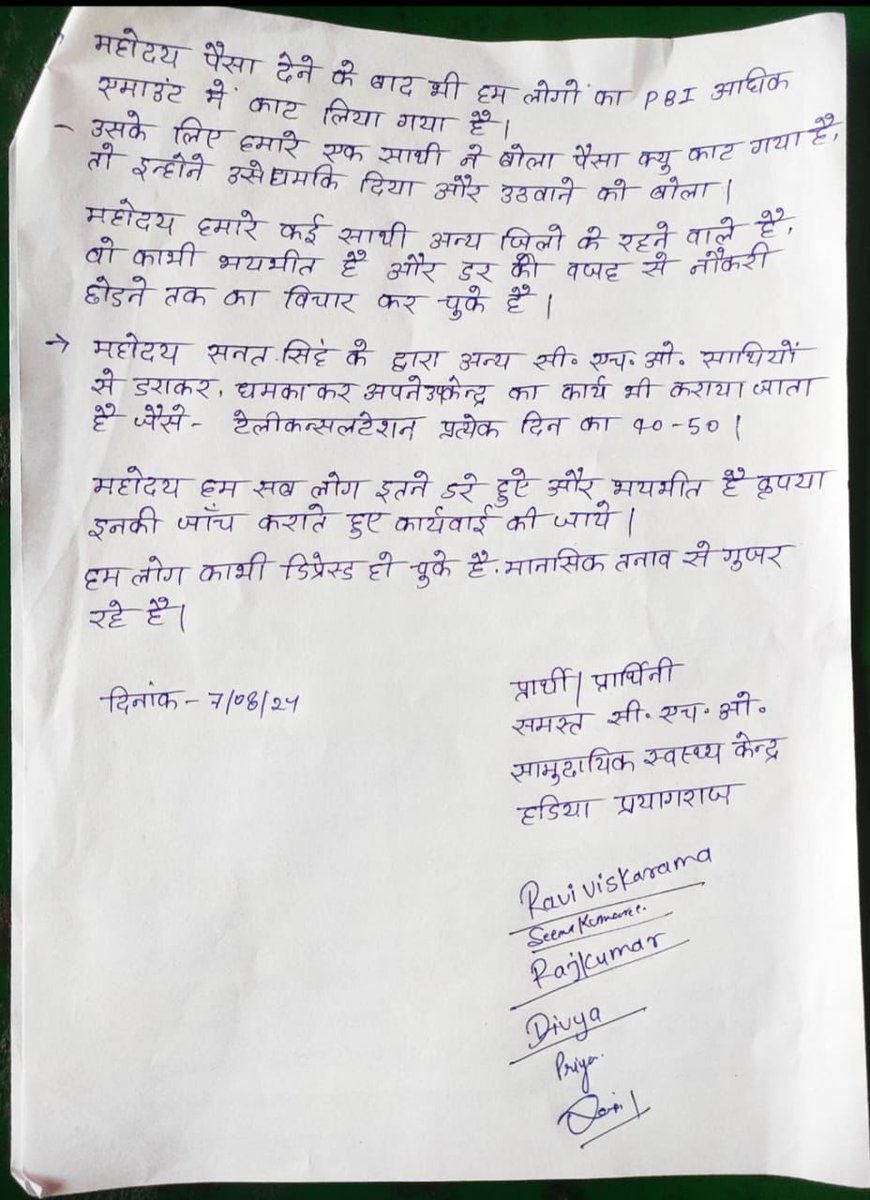 महोदय पैसा देने के बाद भी हम लोगों का PBI अधिक
एमाउंट में काट लिया गया है।
- उसके लिए हमारे एक साथी ने बोला पैसा क्यु काट गया है,
तो इन्होने उसे धमकि दिया और उठवाने को बोला।
महोदय हमारे कई साथी अन्य जिलो के रहने वाले है,
वो काभी भयभीत है और डर की वजह से नौकरी
छोडने तक का विचार कर चुके है।
→ महोदय सनत सिहं के द्वारा अन्य सी. एच. ओ. साथियों
से डराकर, धमकाकर अपने उपकेन्द्र का कार्य भी कराया जाता
है जैसे - टेलीकन्सलटेशन प्रत्येक दिन का 40-50।
महोदय हम सब लोग इतने डरे हुऐ और भयभीत है कृपया
इनकी जाँच कराते हुए कार्यवाई की जाये।
हम लोग काभी डिप्रेस्ड हो चुके है. मानसिक तनाव से गुजर
रहे है।
दिनांक - 7/08/24
प्रार्थी / प्रार्थिनी
समस्त सी. एच. ओ.
सामुदायिक स्वस्थ्य केन्द्र
हडिया प्रयागराज
Ravi viskarama
Seema Kumari
Rajkumar
Divya
Priya